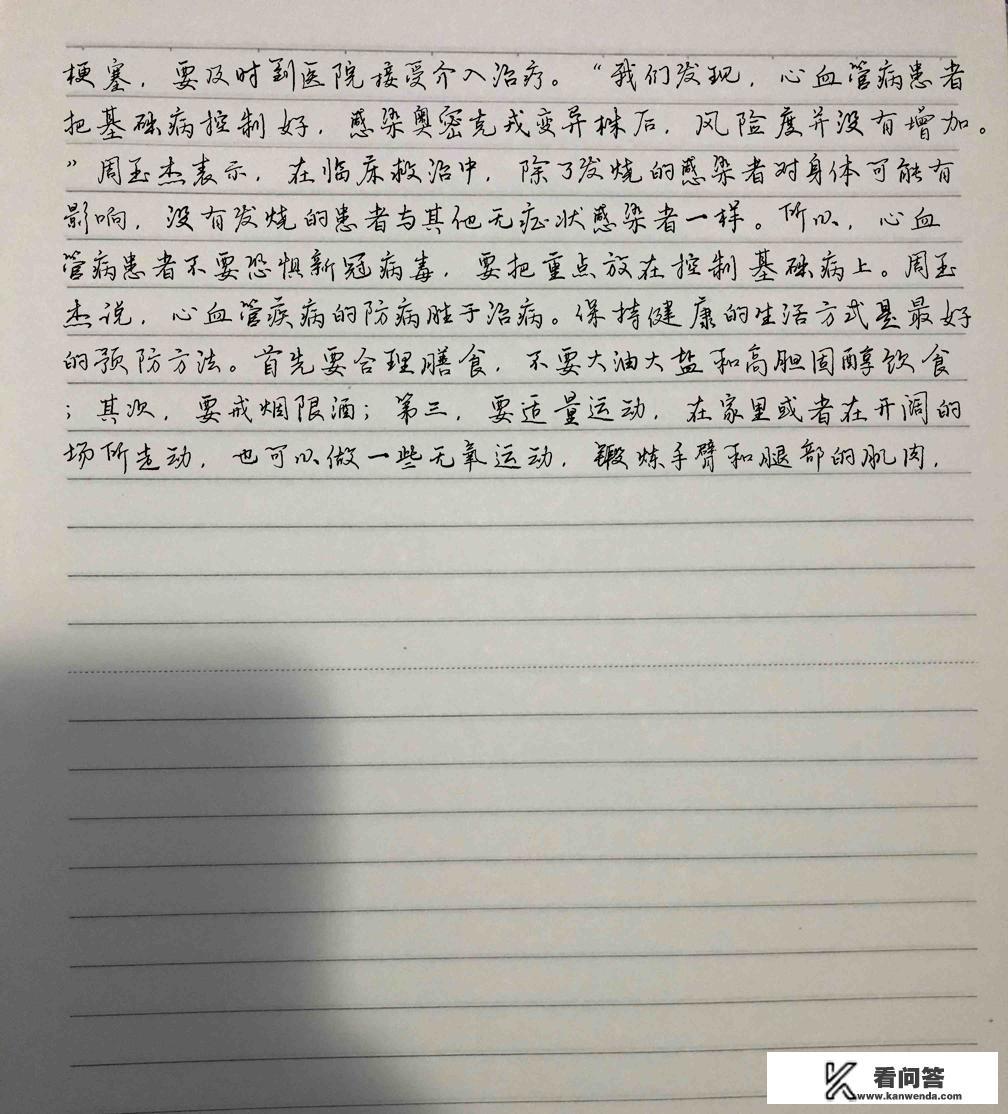 梗塞，要及时到医院接受介入治疗。“我们发现，心血管病患者
把基础病控制好，感染奥密克戎变异株后，风险度并没有增加。
”周玉杰表示，在临床救治中，除了发烧的感染者对身体可能有
影响，没有发烧的患者与其他无症状感染者一样。所以，心血
管病患者不要恐惧新冠病毒，要把重点放在控制基础病上。周玉
杰说，心血管疾病的防病胜于治病。保持健康的生活方式是最好
的预防方法。首先要合理膳食，不要大油大盐和高胆固醇饮食
；其次，要戒烟限酒；第三，要适量运动，在家里或者在开阔的
场所走动，也可以做一些无氧运动，锻炼手臂和腿部的肌肉，
看问答
www.kanwenda.com